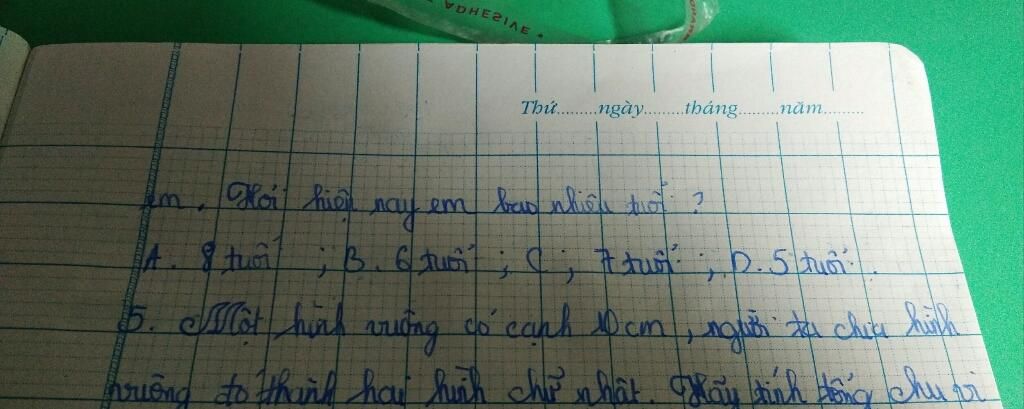 ADHESIVE
Thứ.........ngày.........tháng.........năm.........
em. Hỏi hiện nay em bao nhiêu tuổi ?
A. 8 tuổi ; B. 6 tuổi ; C ; 7 tuổi ; D. 5 tuổi.
5. Một hình vuông có cạnh 10 cm, người ta chia hình
vuông đó thành hai hình chữ nhật. Hãy tính tổng chu vi